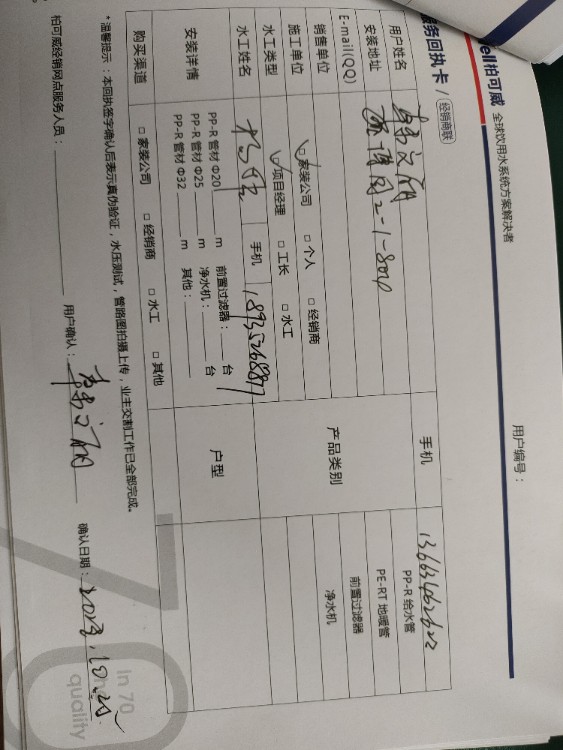 ell柏可威 全球饮用水系统方案解决者
服务回执卡 / 经销商联
用户编号：
用户姓名
手机 13663462622
安装地址 2-1-801
E-mail(QQ)
产品类别
PP-R 给水管
PE-RT 地暖管
前置过滤器
净水机
销售单位
施工单位 ☑家装公司 □个人 □经销商
水工类型 ☑项目经理 □工长 □水工
水工姓名
手机 18935268817
安装详情
PP-R 管材 Φ20 m 前置过滤器： 台
PP-R 管材 Φ25 m 净水机： 台
PP-R 管材 Φ32 m 其他：
户型
购买渠道 □家装公司 □经销商 □水工 □其他
*温馨提示：本回执签字确认后表示真伪验证，水压测试，管路图拍摄上传，业主交割工作已全部完成。
柏可威经销网点服务人员： 用户确认： 确认日期：2023.10.25
In 70
quality